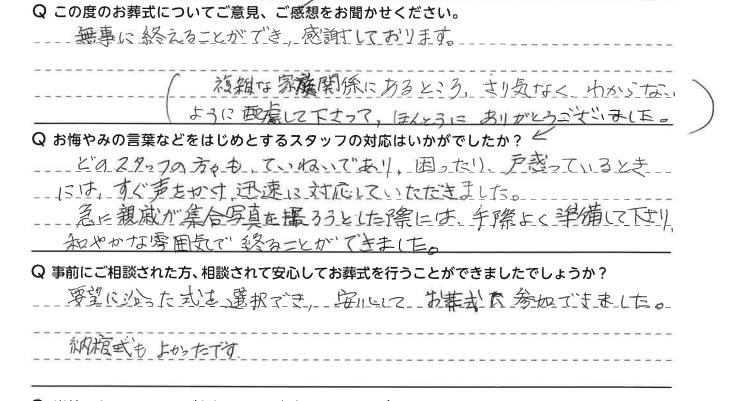 Q この度のお葬式についてご意見、ご感想をお聞かせください。
無事に終えることができ、感謝しております。
(複雑な家族関係にあるところ、さり気なく、わからない
ように配慮して下さって、ほんとうにありがとうございました。)
Q お悔やみの言葉などをはじめとするスタッフの対応はいかがでしたか?
どのスタッフの方々も、ていねいであり、困ったり、戸惑っているとき
には、すぐ声をかけ、迅速に対応していただきました。
急に親戚が集合写真を撮ろうとした際には、手際よく準備して下さり、
和やかな雰囲気で終ることができました。
Q 事前にご相談された方、相談されて安心してお葬式を行うことができましたでしょうか?
要望に沿った式を選択でき、安心してお葬式に参加できました。
納棺式もよかったです